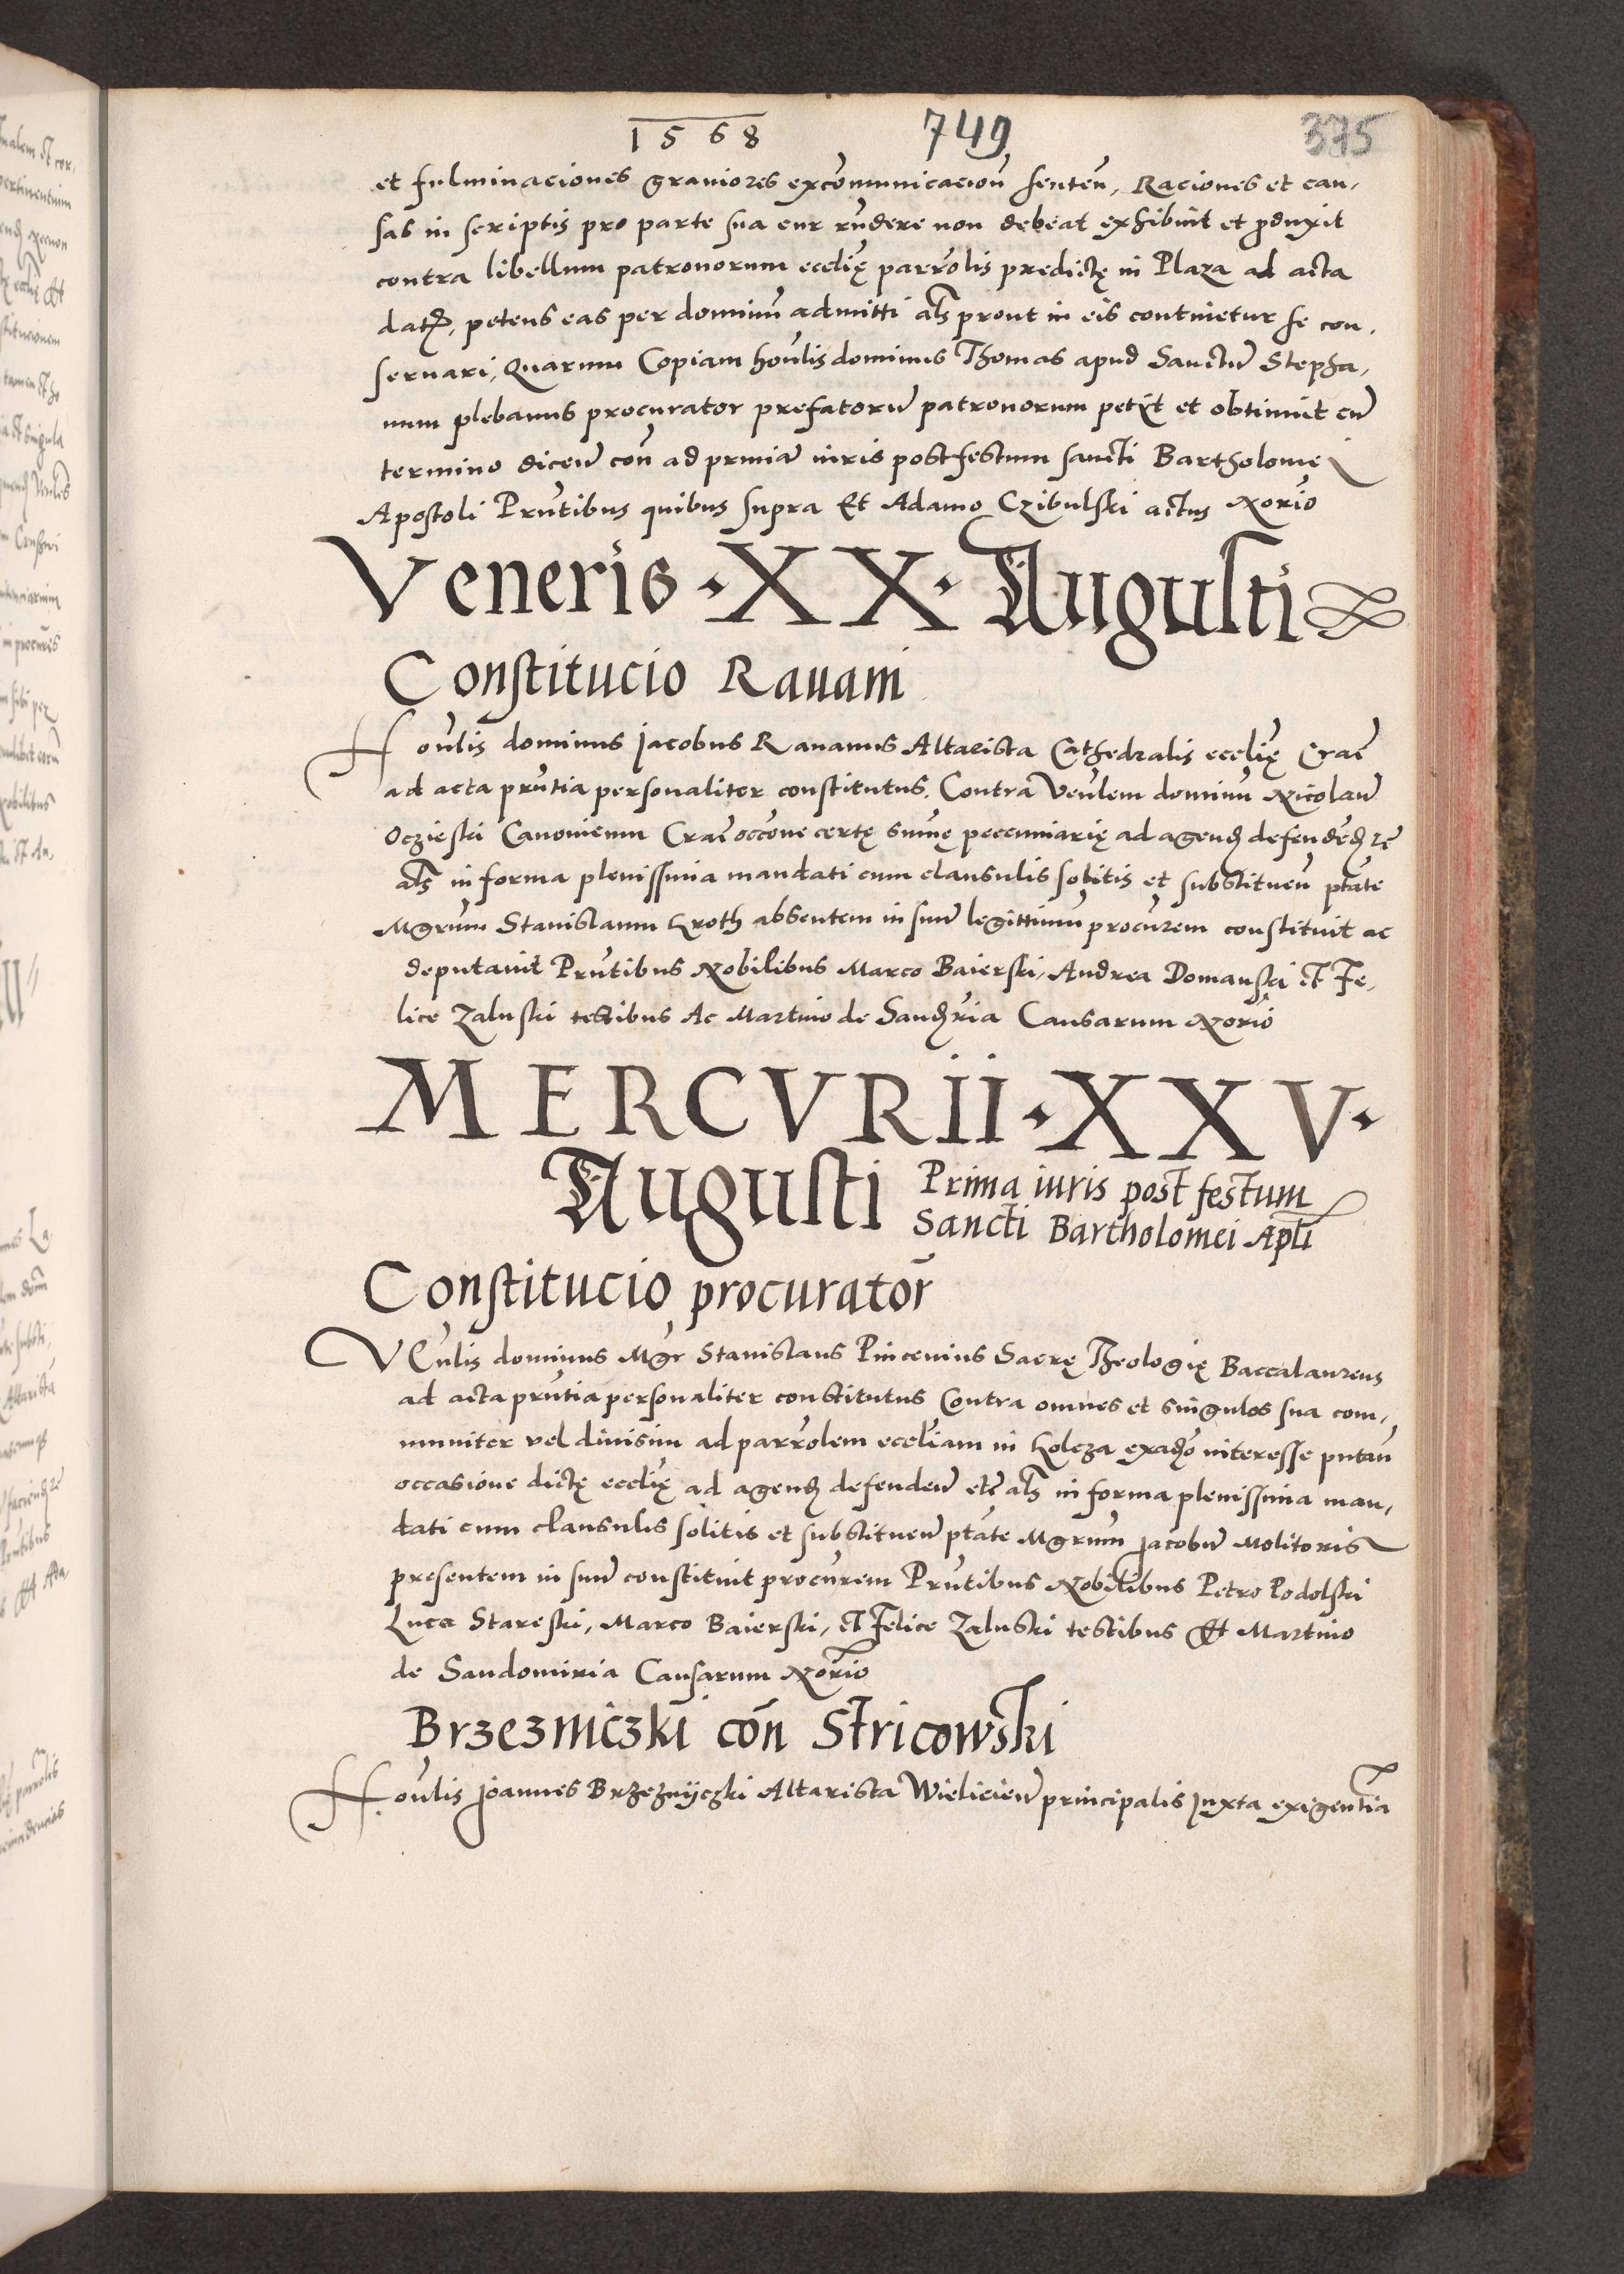 1568 749 375
et fulminaciones graviores excõmunicacioñ senteñ, Raciones et cau,
sas in scriptis pro parte sua cur rñdere non debeat exhibuit et pduxit
contra libellum patronorum ecclię parrolis predictę in Plaza ad acta
datũ, petens eas per dominũ admitti als prout in eis continetur se con,
servari, Quarum Copiam hoñlis dominus Thomas apud Sanctũ Stepha,
num plebanus procurator prefatorũ patronorum petyt et obtinuit cũ
termino dicenᷤ coñ ad primã iuris post festum sancti Bartholomei
Apostoli Prñtibus quibus supra Et Adamo Czibulski actus Norio
Veneris · XX · Augusti
Constitucio Ravani
Hoñlis dominus Jacobus Ravanus Altarista Cathedralis ecclię Crac̃
ad acta prñtia personaliter constitutus. Contra Veñlem dominũ Nicolaũ
Oczieski Canonicum Crac̃ occõne certę sum̃ę pecuniarię ad agend̃ defendẽd̃ rẽ
als in forma plenissima mandati cum clausulis solitis et substitueñ ptãte
Mgrũm Stanislaum Kroth absentem in suũ legittimũ procurem constituit ac
deputavit Prñtibus Nobilibus Marco Baierski, Andrea Domanski et Fe,
lice Zaluski testibus Ac Martino de Sandr̃ia Causarum Norio
MERCVRII · XXV ·
Augusti Prima iuris post festum
Sancti Bartholomei Apli
Constitucio procurator̃
Veñlis dominus Mgr Stanislaus Pincenius Sacrę Theologię Baccalaureus
ad acta prñtia personaliter constitutus Contra omnes et singulos sua com,
muniter vel divisim ad parrolem eccliam in Kolcza exadŏ interesse putañ
occasione dictę ecclię ad agend̃ defendeñ etc̃ als in forma plenissima man,
dati cum clausulis solitis et substitueñ ptãte Mgrũm Jacobũ Molitoris
presentem in suũ constituit procurem Prñtibus Nobilibus Petro Podolski
Luca Stareski, Marco Baierski, et Felice Zaluski testibus Et Martino
de Sandomiria Causarum Norio
Brzezniczki coñ Stricowski
Hoñlis Joannes Brzeznyczki Altarista Wielicieñ principalis Juxta exigentiã